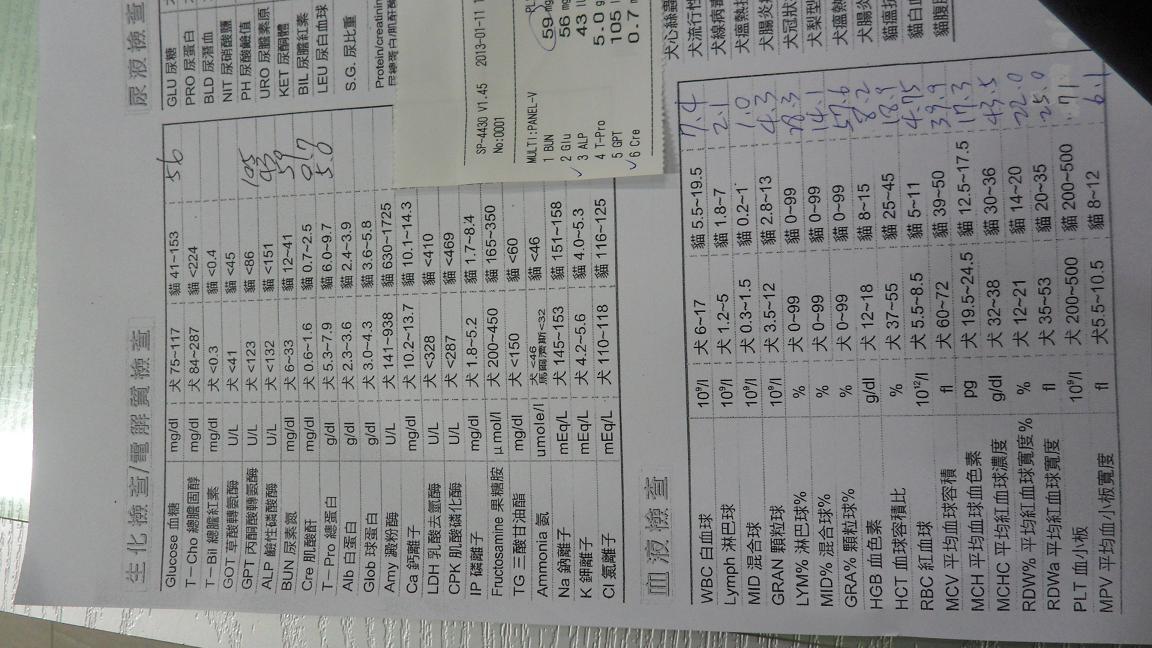 生化檢查/電解質檢查
Glucose 血糖 mg/dl 犬 75~117 貓 41~153 56
T-Cho 總膽固醇 mg/dl 犬 84~287 貓 <224
T-Bil 總膽紅素 mg/dl 犬 <0.3 貓 <0.4
GOT 草酸轉氨酶 U/L 犬 <41 貓 <45
GPT 丙酮酸轉氨酶 U/L 犬 <123 貓 <86 105
ALP 鹼性磷酸酶 U/L 犬 <132 貓 <151 43
BUN 尿素氮 mg/dl 犬 6~33 貓 12~41 59
Cre 肌酸酐 mg/dl 犬 0.6~1.6 貓 0.7~2.5 0.7
T-Pro 總蛋白 g/dl 犬 5.3~7.9 貓 6.0~9.7 5.0
Alb 白蛋白 g/dl 犬 2.3~3.6 貓 2.4~3.9
Glob 球蛋白 g/dl 犬 3.0~4.3 貓 3.6~5.8
Amy 澱粉酶 U/L 犬 141~938 貓 630~1725
Ca 鈣離子 mg/dl 犬 10.2~13.7 貓 10.1~14.3
LDH 乳酸去氫酶 U/L 犬 <328 貓 <410
CPK 肌酸磷化酶 U/L 犬 <287 貓 <469
IP 磷離子 mg/dl 犬 1.8~5.2 貓 1.7~8.4
Fuctosamine 果糖胺 μmol/l 犬 200~450 貓 165~350
TG 三酸甘油酯 mg/dl 犬 <150 貓 <60
Ammonia 氨 umole/l 犬 <46 馬爾濟斯<32 貓 <46
Na 鈉離子 mEq/L 犬 145~153 貓 151~158
K 鉀離子 mEq/L 犬 4.2~5.6 貓 4.0~5.3
Cl 氯離子 mEq/L 犬 110~118 貓 116~125
尿液檢查
GLU 尿糖
PRO 尿蛋白
BLD 尿潛血
NIT 尿硝酸鹽
PH 尿酸鹼值
URO 尿膽素原
KET 尿酮體
BIL 尿膽紅素
LEU 尿白血球
S.G. 尿比重
Protein/creatinin
SP-4430 V1.45 2013-01-11 1
No:0001
MULTI:PANEL-V
1 BUN 59 mg
2 Glu 56 mg
3 ALP 43 IU
4 T-Pro 5.0 g
5 GPT 105 I
6 Cre 0.7 m
血液檢查
WBC 白血球 10⁹/l 犬 6~17 貓 5.5~19.5 7.4
Lymph 淋巴球 10⁹/l 犬 1.2~5 貓 1.8~7 2.1
MID 混合球 10⁹/l 犬 0.3~1.5 貓 0.2~1 1.0
GRAN 顆粒球 10⁹/l 犬 3.5~12 貓 2.8~13 4.3
LYM% 淋巴球% % 犬 0~99 貓 0~99 28.3
MID% 混合球% % 犬 0~99 貓 0~99 14.1
GRA% 顆粒球% % 犬 0~99 貓 0~99 57.6
HGB 血色素 g/dl 犬 12~18 貓 8~15 8.2
HCT 血球容積比 % 犬 37~55 貓 25~45 18.9
RBC 紅血球 10¹²/l 犬 5.5~8.5 貓 5~11 4.75
MCV 平均血球容積 fl 犬 60~72 貓 39~50 39.9
MCH 平均血球血色素 pg 犬 19.5~24.5 貓 12.5~17.5 17.3
MCHC 平均紅血球濃度 g/dl 犬 32~38 貓 30~36 43.5
RDW% 平均紅血球寬度% % 犬 12~21 貓 14~20 22.0
RDWa 平均紅血球寬度 fl 犬 35~53 貓 20~35 25.0
PLT 血小板 10⁹/l 犬 200~500 貓 200~500 71
MPV 平均血小板寬度 fl 犬5.5~10.5 貓 8~12 6.1
犬心絲蟲
犬流行性
犬線病毒
犬瘟熱抗
犬腸炎抗
犬冠狀
犬梨型
犬瘟熱
犬腸炎
貓瘟抗
貓白血
貓腹